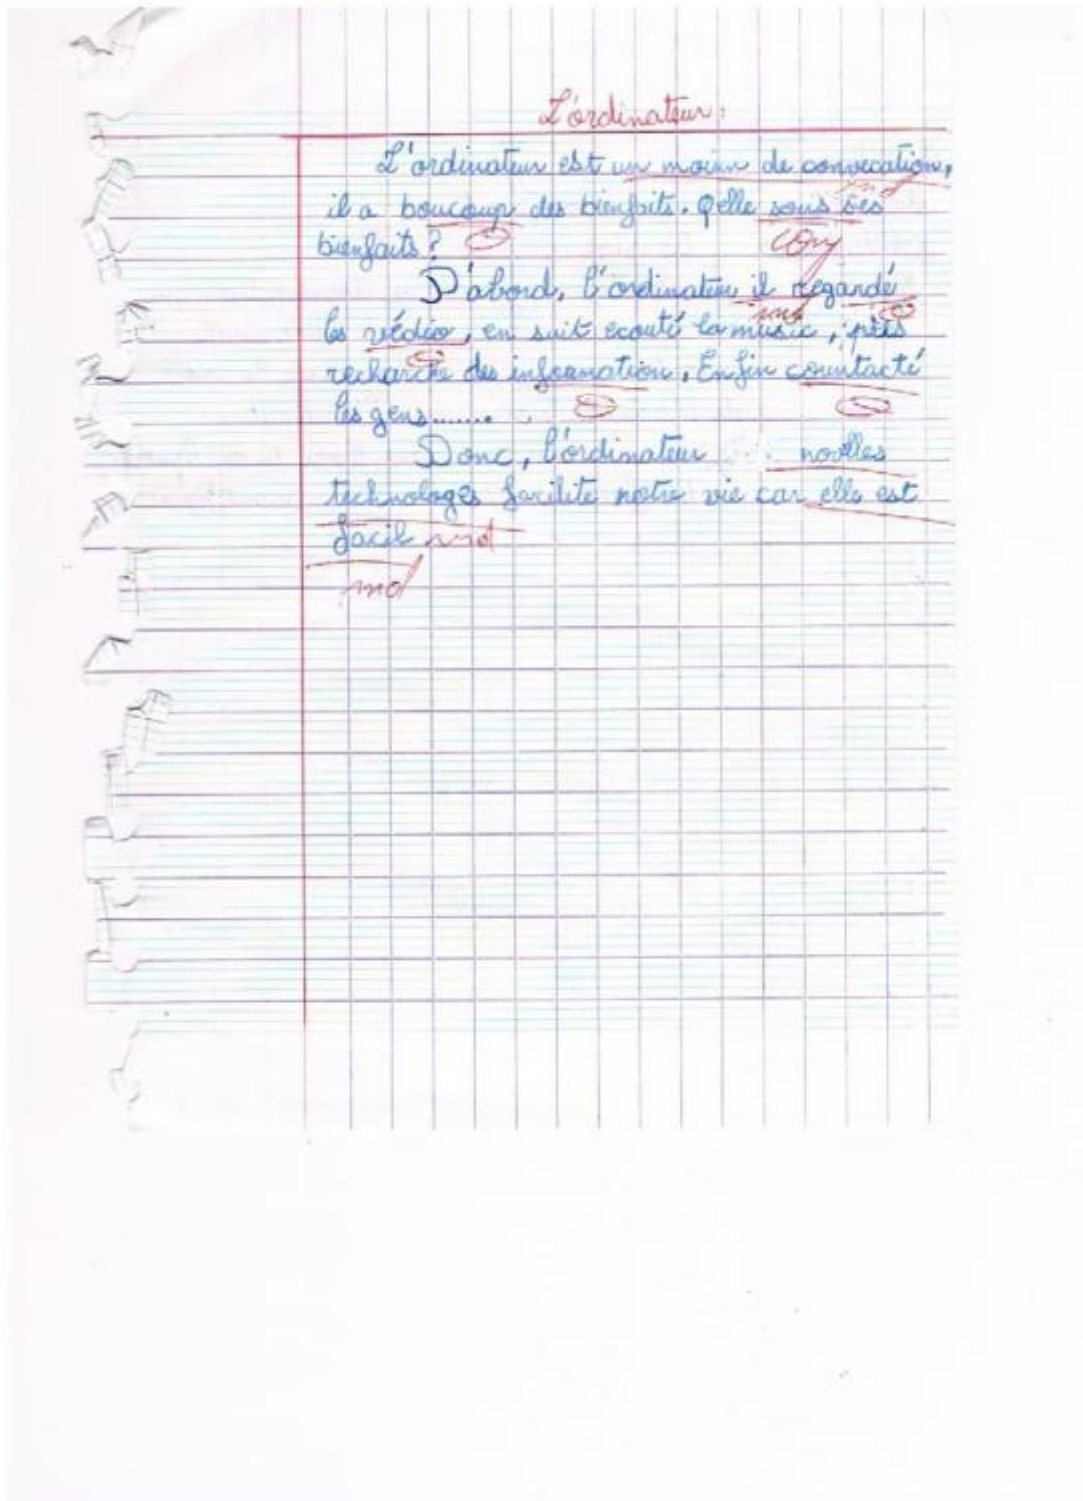 L'ordinateur :
L'ordinateur est un moien de convecation,
il a boucoup des bienfaits. Qelle sous ses
bienfaits ?
D'abord, l'ordinateur il regardé
les védio, en suit ecouté la music,
recharche des information, Enfin countacté
les gens.......
Donc, l'ordinateur novlles
technologes facilite notre vie car elle est
facil